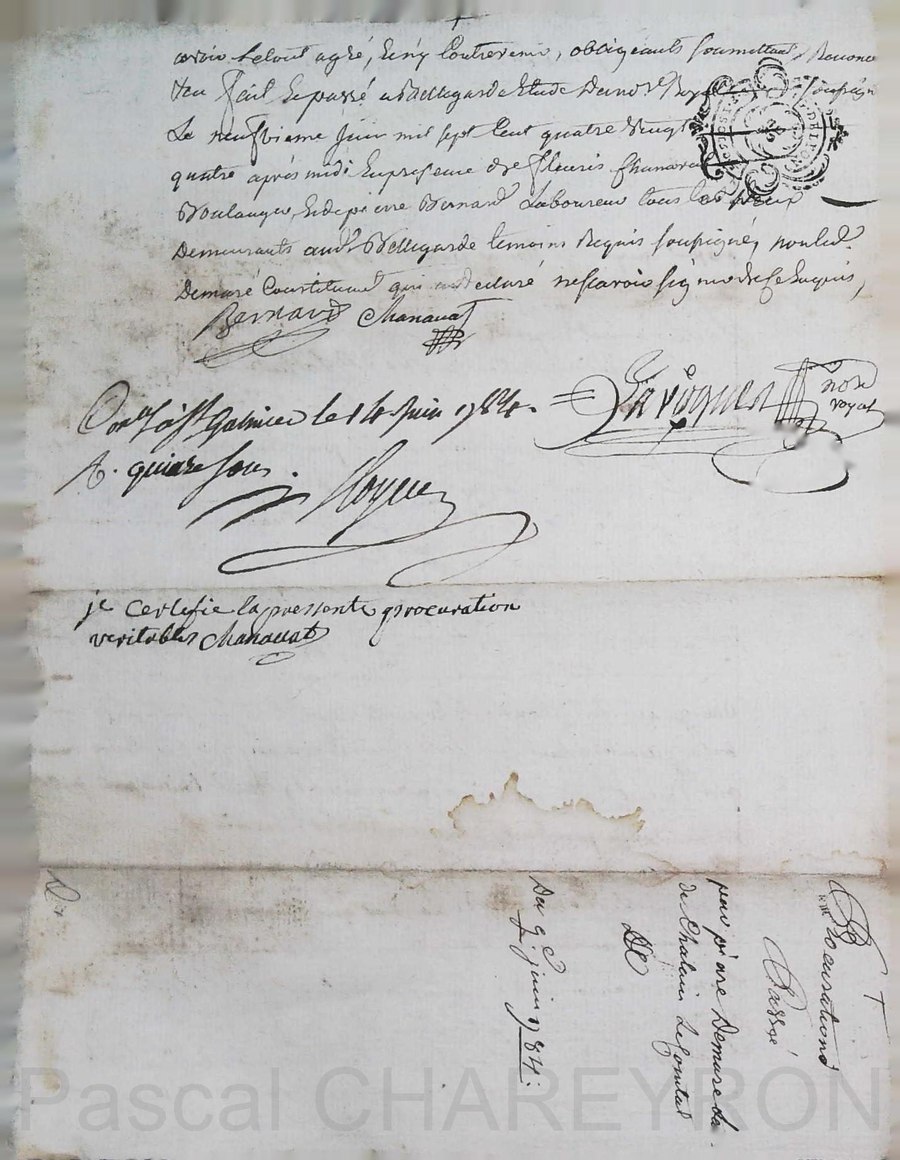 avoir le tout agréé, sen'y Contrevenir, obligeants soumettant, Renonce
fait & passé a Bellegarde Etude
Le neufvieme Juin mil sept Cent quatre Vingt
quatre aprés midi En presence de Sr fleuris Chanavat
Boulanger, & de pierre Bernard Laboureur tous les deux
Demeurants aud.t Bellegarde temoins Requis soussignés, non led.t
Demaré Constituant qui a declaré ne scavoir signer de ce Enquis,
Bernard Chanavat
Con.lé a St Galmier le 14 Juin 1784.
R. quinze sous.
notre
royal
je certifie la pressente procuration
veritables Chanavat
Procurations
Passé
par piare Demare da
de Chalain Le Comtal
Du 9.e juin 1784:
Pascal CHAREYRON